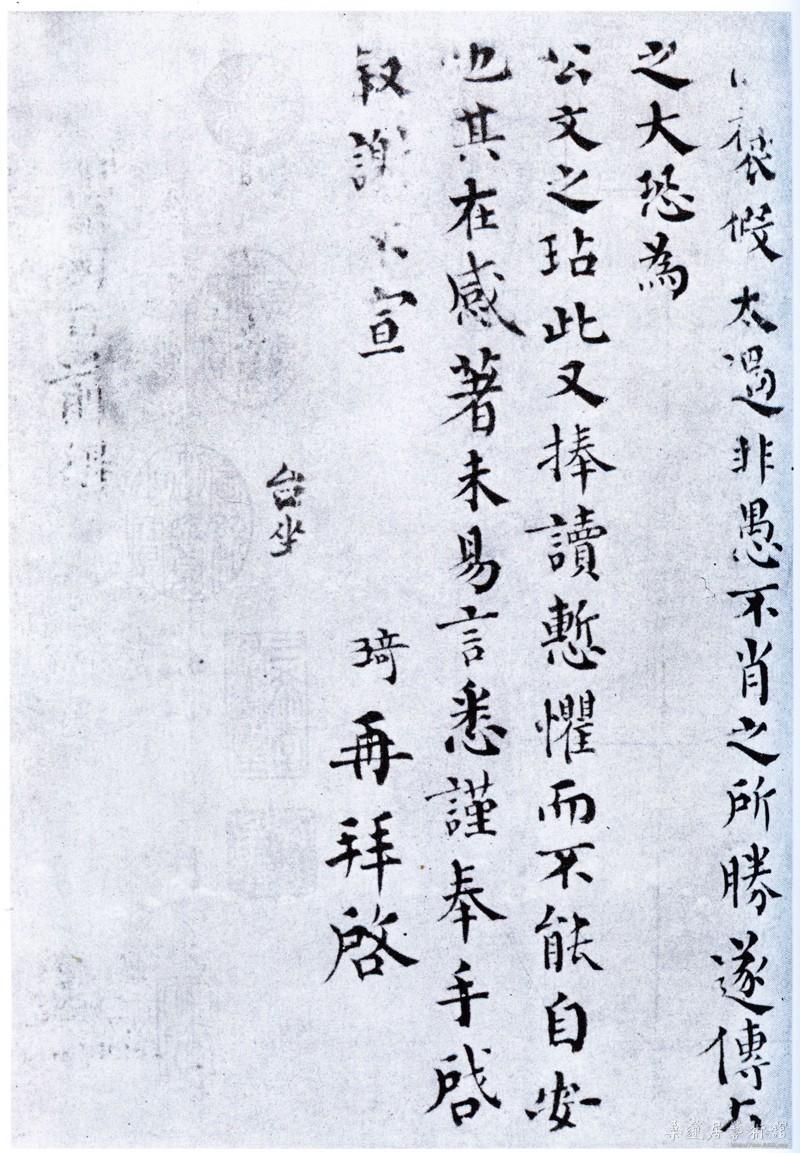 褒假太過非愚不肖之所勝遂傳
之大恐為
公文之玷此又捧讀慙懼而不能自安
也其在感著未易言悉謹奉手啓
叙謝不宣
琦再拜啓
台坐